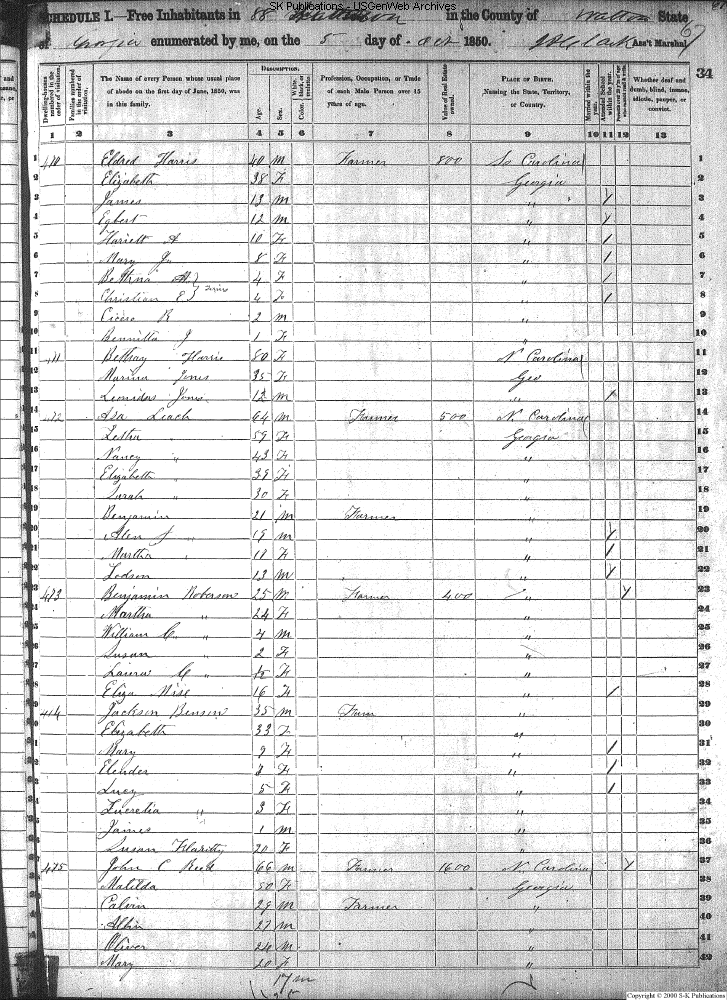 SK Publications - USGenWeb Archives
SCHEDULE I.—Free Inhabitants in 88 in the County of Walton State
of Georgia enumerated by me, on the 5 day of Oct 1850. Clark Ass't Marshal 67
34
Dwelling-houses numbered in the order of visitation.
Families numbered in the order of visitation.
The Name of every Person whose usual place of abode on the first day of June, 1850, was in this family.
Description.
Age.
Sex.
White, black, or mulatto.
Color.
Profession, Occupation, or Trade of each Male Person over 15 years of age.
Value of Real Estate owned.
Place of Birth. Naming the State, Territory, or Country.
Married within the year.
Attended School within the year.
Persons over 20 y'rs of age who cannot read & write.
Whether deaf and dumb, blind, insane, idiotic, pauper, or convict.
1 2 3 4 5 6 7 8 9 10 11 12 13
1 410 Eldred Harris 40 m Farmer 800 So Carolina 1
2 Elizabeth 38 F Georgia 2
3 James 13 m " / 3
4 Egbert 12 m " / 4
5 Hariett A 10 F " / 5
6 Mary J. 8 F " / 6
7 4 F " / 7
8 Christian E } Twins 4 F " / 8
9 Cicero R 2 m " 9
10 J 1 F " 10
11 411 Harris 80 F N Carolina 11
12 Jones 35 F Geo 12
13 Leonidas Jones 12 m " / 13
14 Asa Leach 64 m Farmer 500 N Carolina 14
15 59 F Georgia 15
16 Nancy " 43 F " 16
17 Elizabeth " 39 F " 17
18 Sarah " 30 F " 18
19 Benjamin 21 m Farmer " 19
20 J 19 m " / 20
21 Martha " F " / 21
22 13 m " / 22
23 413 Benjamin Roberson 25 m Farmer 400 " / 23
24 Martha " 24 F " 24
25 William C. " 4 m " 25
26 Susan " 2 F " 26
27 C " F " 27
28 Eliza 16 F " / 28
29 414 Jackson Benson 35 m Farm " 29
30 Elizabeth 33 F " 30
31 Mary 9 F " / 31
32 Elender F " / 32
33 Lucy 5 F " / 33
34 Lucretia " 3 F " 34
35 James 1 m " 35
36 Susan 20 F " 36
37 415 John C 66 m Farmer 1600 N. Carolina / 37
38 Matilda 50 F Georgia 38
39 Calvin 29 m Farmer " 39
40 27 m " 40
41 Oliver 24 m " 41
42 Mary 20 F " 42
17 m
Copyright © 2000 S-K Publications